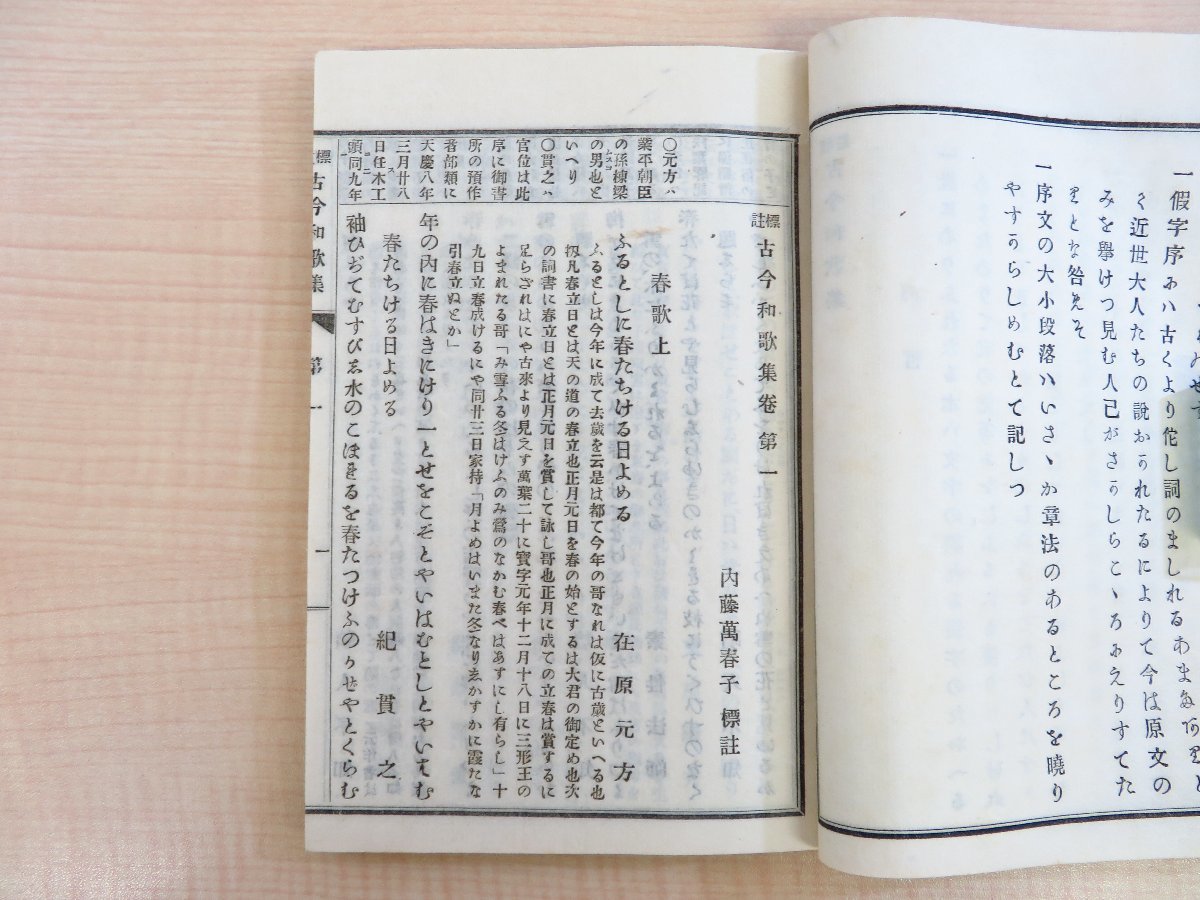 一假字序ハ古くより佗し詞のましれる
く近世大人たちの説かれたるによりて今は原文の
みを擧けつ見む人己がさしらころえりすてた
とな咎そ
一序文の大小段落ハいさゝか章法のあるところを曉り
やすからしめむとて記しつ
標註 古今和歌集卷第一
內藤萬春子標註
春歌上
ふるとしに春たちける日よめる 在原元方
ふるとしは今年に成て去歳を云是は都て今年の哥なれは仮に古歳といへる也
扨凡春立日とは天の道の春立也正月元日を春の始とするは大君の御定め也次
の詞書に春立日とは正月元日を賞して詠し哥也正月に成ての立春は賞するに
足らざれはにや古來より見えす萬葉二十に寶字元年十二月十八日に三形王の
よまれたる哥「み雪ふる冬はけふのみ鶯のなかむ春べはあすにし有らし」十
九日立春成けるにや同廿三日家持「月よめはいまた冬なりゑかすかに霞たな
引春立ぬとか」
年の內に春はきにけり一とせをこそとやいはむとしとやいはむ
春たちける日よめる 紀貫之
袖ひぢてむすびゑ水のこほをるを春たつけふのかせやとくらむ
〇元方ハ
業平朝臣
の孫棟梁
の男也と
いへり
〇貫之ハ
官位は此
序に御書
所の預作
者部類に
天慶八年
三月廿八
日任木工
頭同九年
標 古今和歌集 第一 一